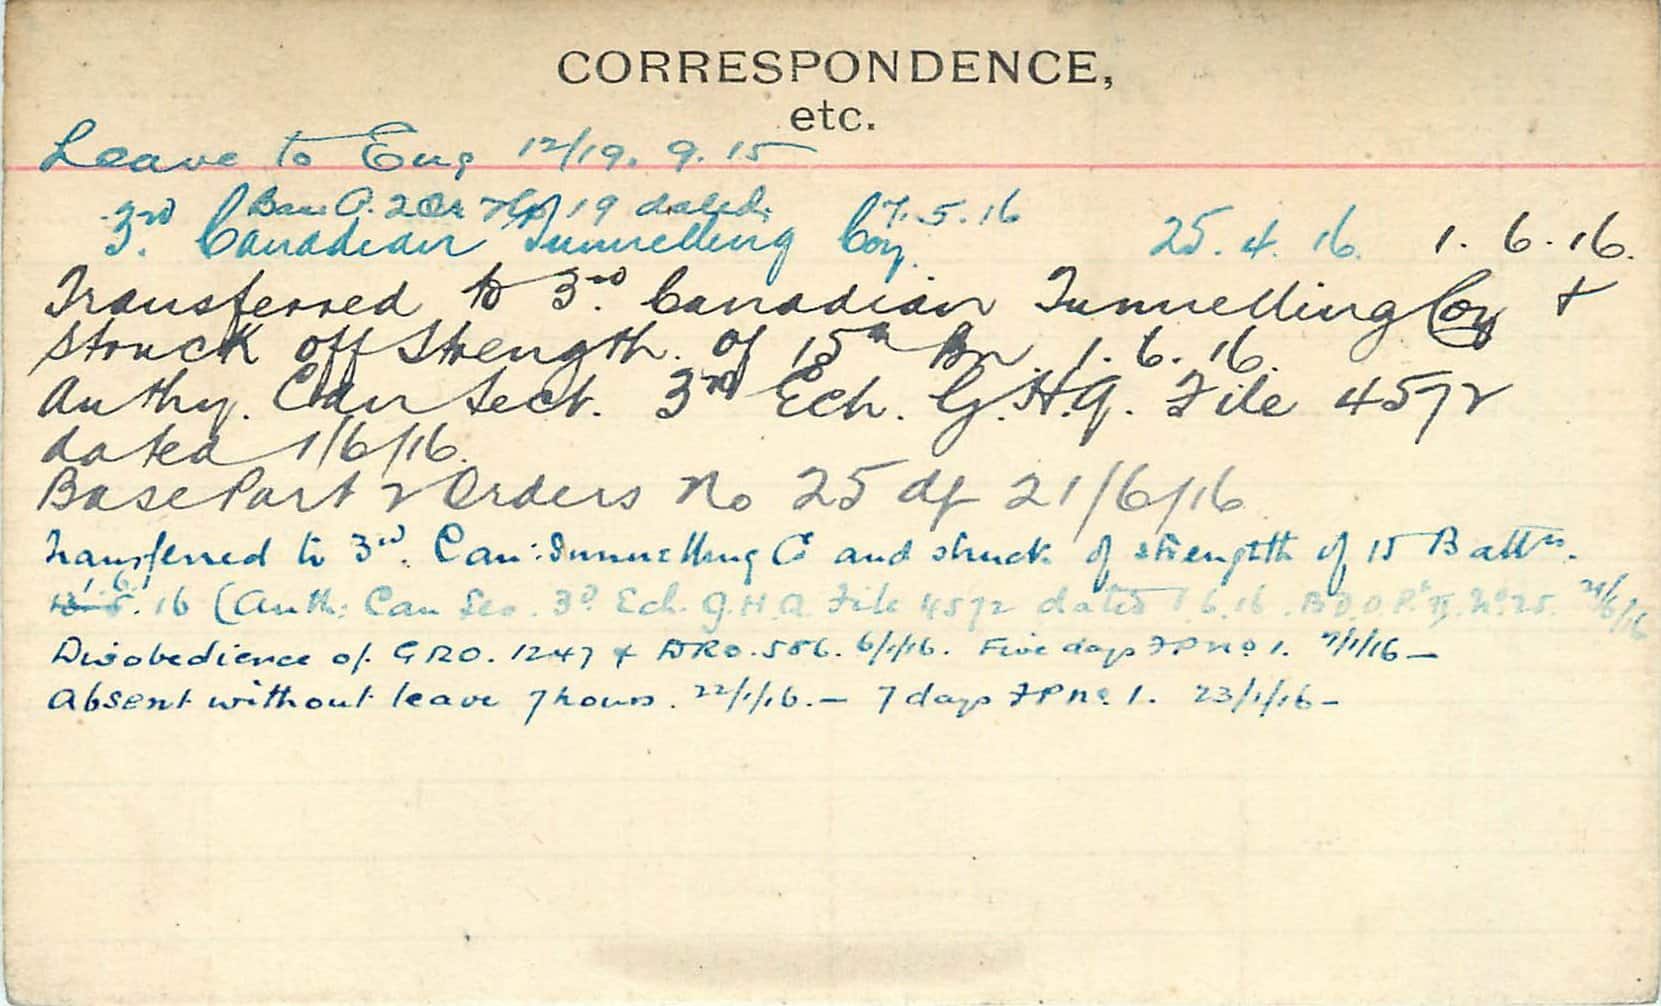 CORRESPONDENCE,
etc.
Leave to Eng 12/19. 9. 15
Base P. 2 Or No 19 dated 7. 5. 16
3rd Canadian Tunnelling Coy. 25. 4. 16. 1. 6. 16.
Transferred to 3rd Canadian Tunnelling Coy +
struck off Strength. of 15th Bn. 1. 6. 16.
Authy. Can Sect. 3rd Ech. G.H.Q. File 4572
dated 1/6/16.
Base Part 2 Orders No 25 df 21/6/16
Transferred to 3rd. Can: Tunnelling Co and struck of strength of 15 Battn.
1.6.16 (Auth: Can Sec. 3d Ech. G.H.Q File 4572 dated 1.6.16. B.D.O. Pt II. No 25. 21/6/16
Disobedience of. GRO. 1247 & DRO. 586. 6/1/16. Five days FP No 1. 7/1/16 —
Absent without leave 7 hours. 22/1/16. — 7 days FP No. 1. 23/1/16 —